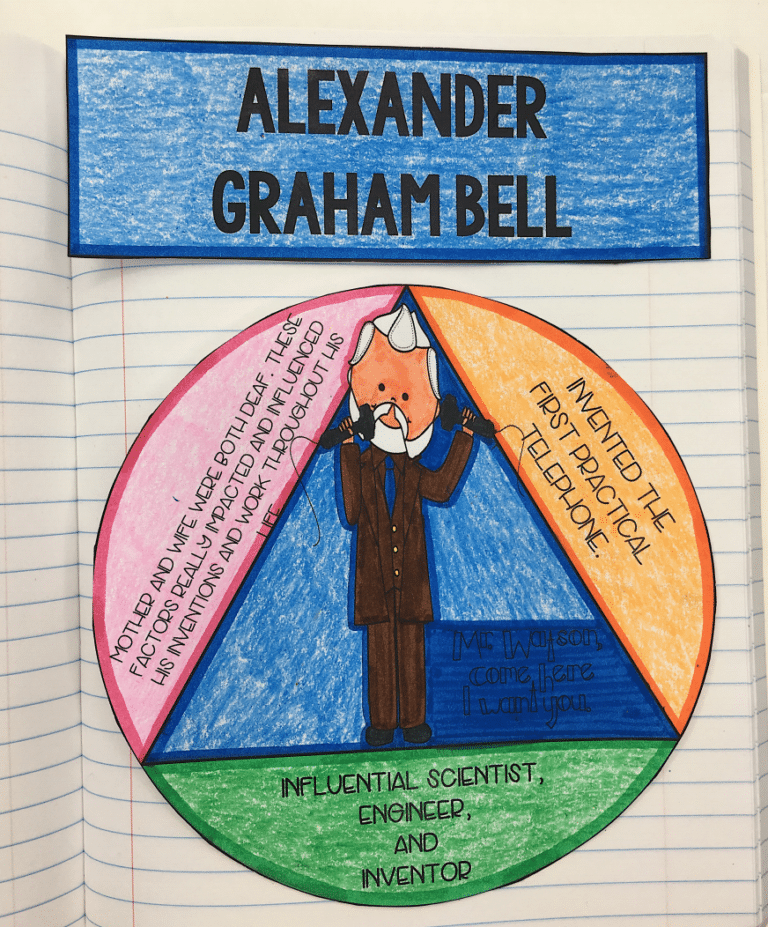 ALEXANDER
GRAHAM BELL
MOTHER AND WIFE WERE BOTH DEAF. THESE
FACTORS REALLY IMPACTED AND INFLUENCED
HIS INVENTIONS AND WORK THROUGHOUT HIS
LIFE
INVENTED THE
FIRST PRACTICAL
TELEPHONE.
Mr. Watson,
come, here
I want you.
INFLUENTIAL SCIENTIST,
ENGINEER,
AND
INVENTOR